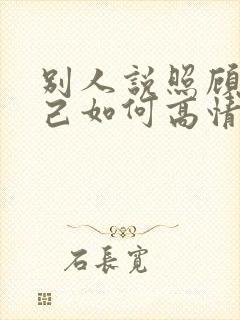 别人説照顾
己如何高情
石長寬